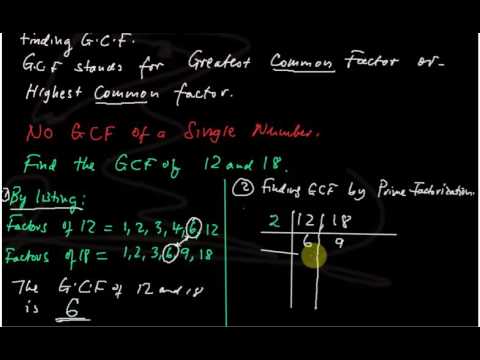 Finding G.C.F.
G.C.F stands for Greatest Common Factor or
Highest Common factor.
No GCF of a Single Number.
Find the GCF of 12 and 18.
① By listing:
Factors of 12 = 1, 2, 3, 4, 6, 12
Factors of 18 = 1, 2, 3, 6, 9, 18
The G.C.F of 12 and 18
is 6
② Finding GCF by Prime Factorization.
2 12, 18
6 9